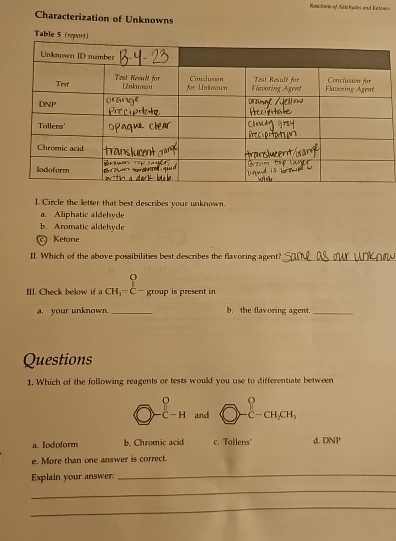 Reactions of Aldehydes and Ketones
Characterization of Unknowns
Table 5 (report)
Unknown ID number B-4-23
Test Test Result for Unknown Conclusion for Unknown Test Result for Flavoring Agent Conclusion for Flavoring Agent
DNP orange Precipitate orange/yellow Precipitate
Tollens' opaque clear Cloudy grey Precipitation
Chromic acid translucent orange translucent/orange
Iodoform Brown top layer, with a dark blob Brown top layer liquid is brown blob
I. Circle the letter that best describes your unknown.
a. Aliphatic aldehyde
b. Aromatic aldehyde
c. Ketone
II. Which of the above possibilities best describes the flavoring agent? same as our unknow
O
III. Check below if a CH₃-C- group is present in
a. your unknown. b. the flavoring agent.
Questions
1. Which of the following reagents or tests would you use to differentiate between
O O
C-H and C-CH₂CH₃
a. Iodoform b. Chromic acid c. Tollens' d. DNP
e. More than one answer is correct.
Explain your answer: